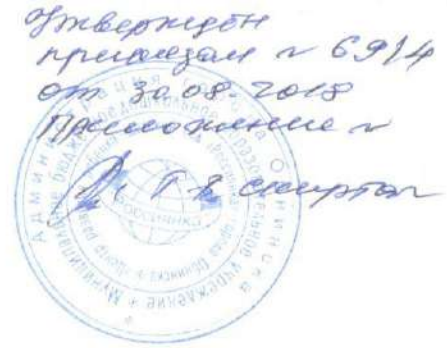 Утвержден
приказом № 69/4
от 30.08.2018
Приложение №
Администрация города Обнинска
Муниципальное бюджетное дошкольное образовательное учреждение
"Россиянка" города Обнинска
РОССИЯНКА